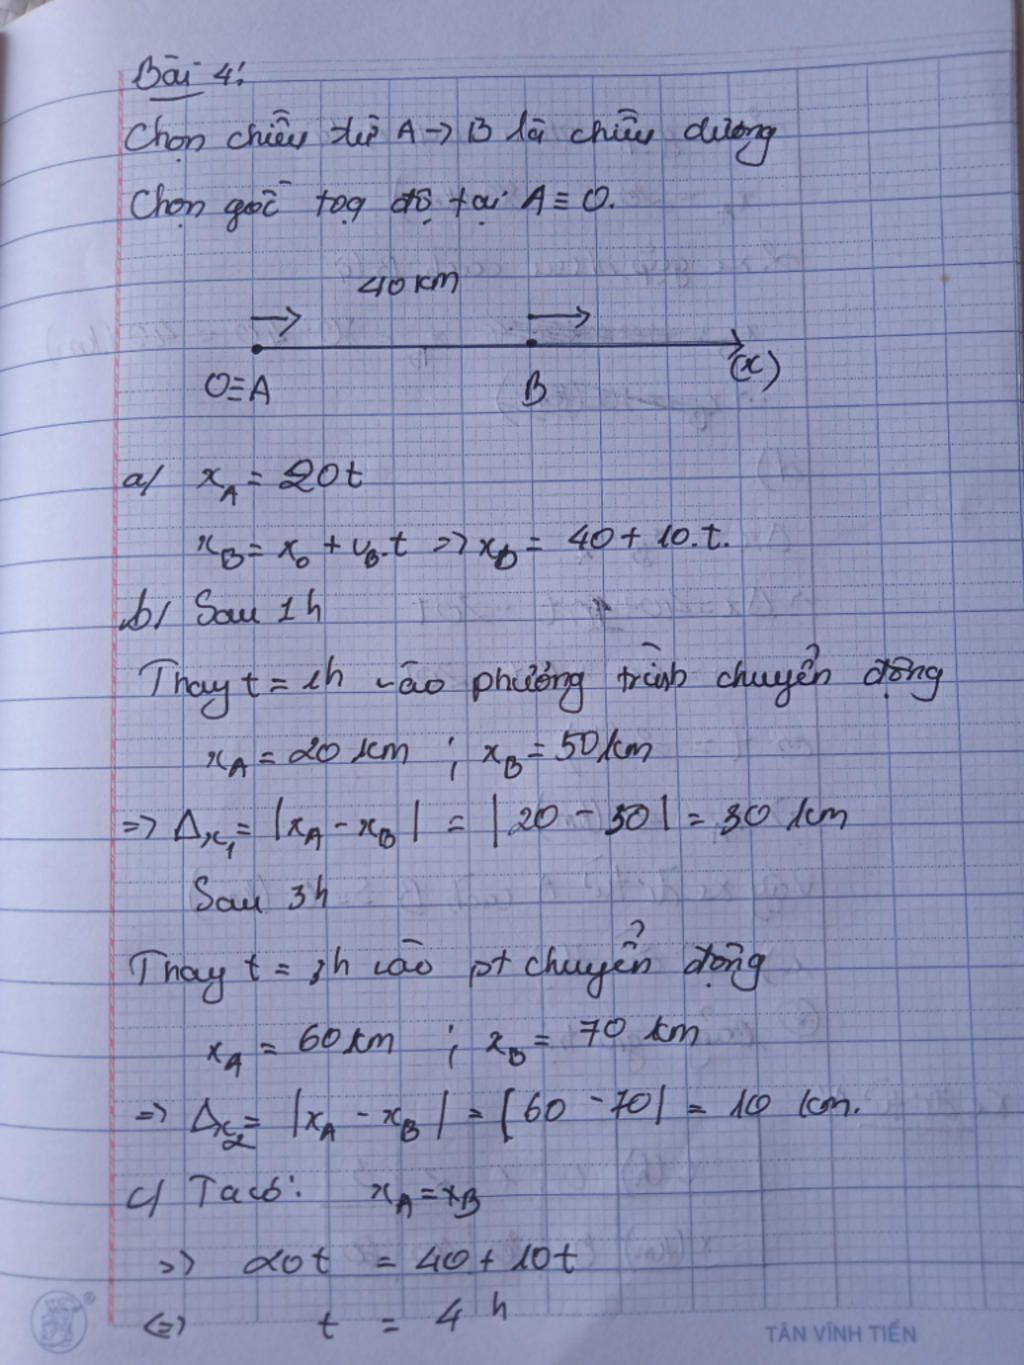 Bài 4:
Chọn chiều từ A → B là chiều dương
Chọn gốc toạ độ tại A ≡ O.
40 km
O≡A B (x)
a/ x_A = 20t
x_B = x_0 + v_B.t => x_B = 40 + 10.t.
b/ Sau 1h
Thay t = 1h vào phương trình chuyển động
x_A = 20 km ; x_B = 50 km
=> Δx_1 = |x_A - x_B| = |20 - 50| = 30 km
Sau 3h
Thay t = 3h vào pt chuyển động
x_A = 60 km ; x_B = 70 km
=> Δx_2 = |x_A - x_B| = |60 - 70| = 10 km.
c/ Ta có: x_A = x_B
=> 20t = 40 + 10t
<=> t = 4h
TÂN VĨNH TIẾN